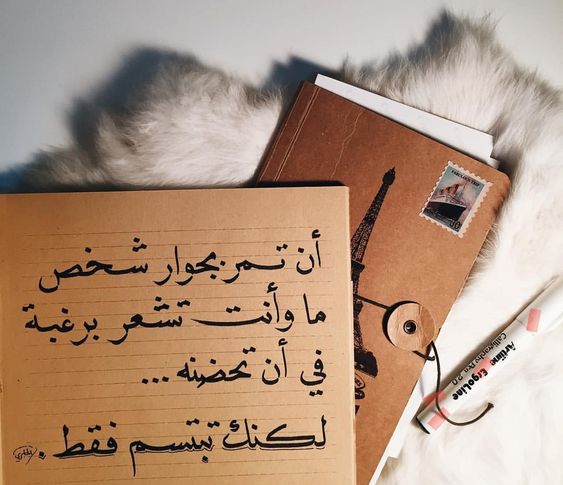 أن تمر بجوار شخص
ما وأنت تشعر برغبة
في أن تحضنه ...
لكنك تبتسم فقط .
Artline ErgoLine
Calligraphy Pen 2.0